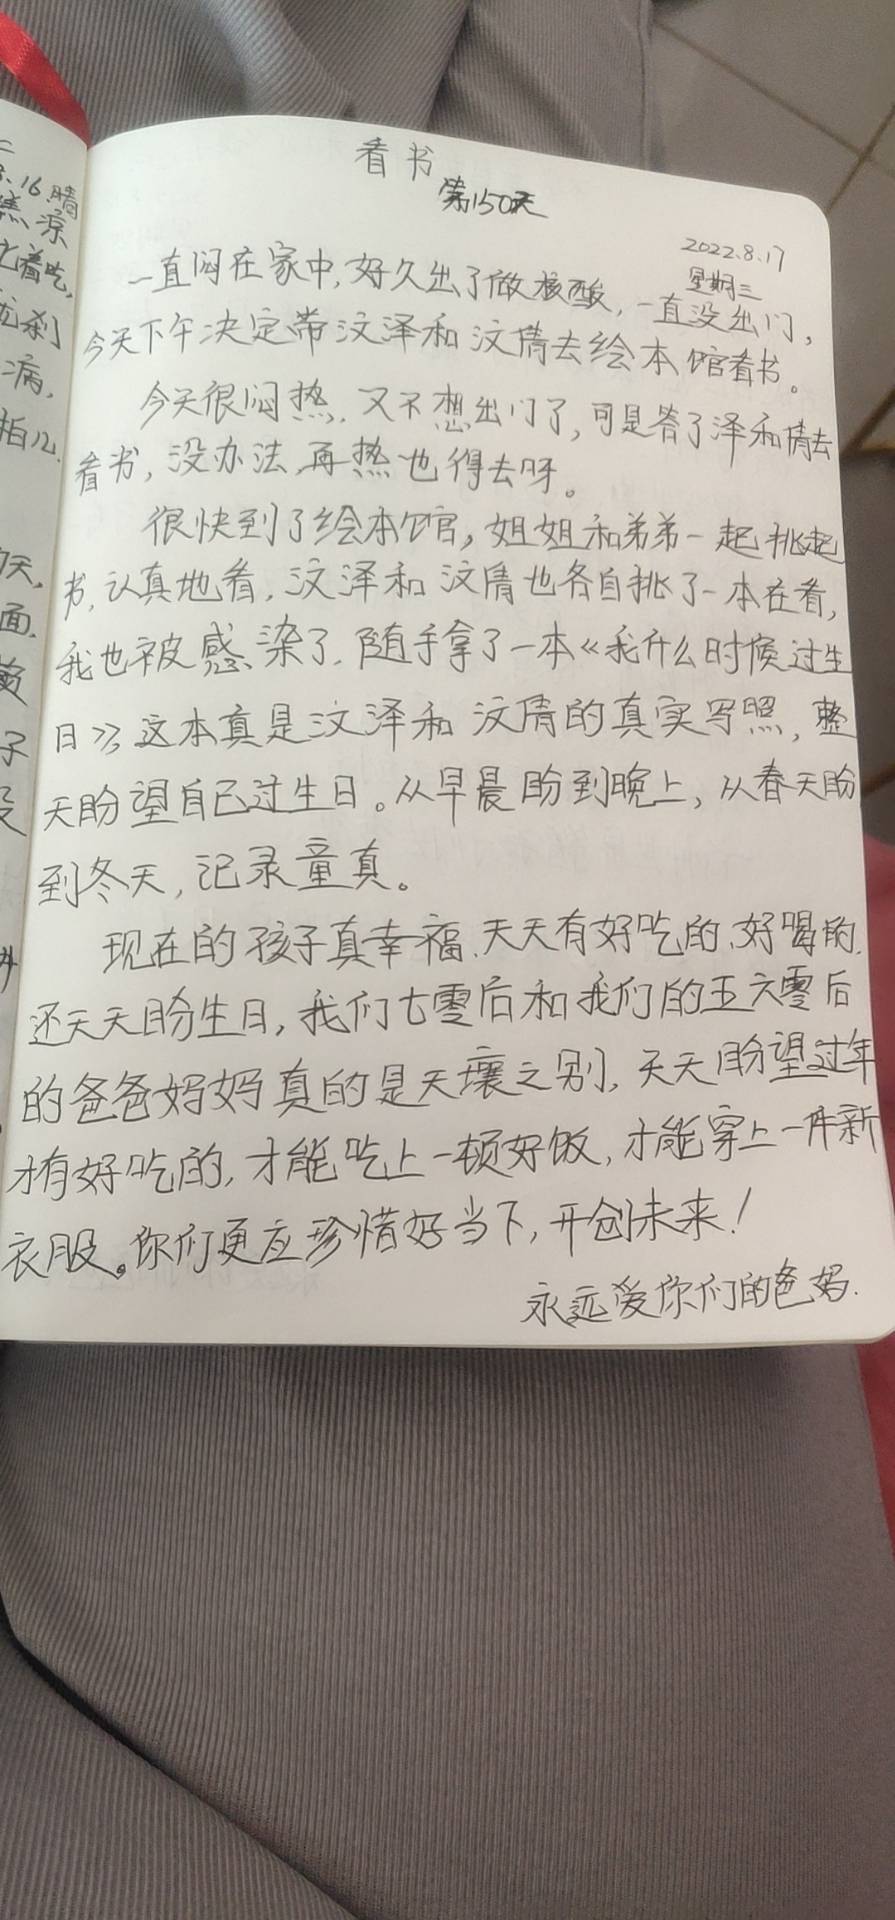 看书
第150天
2022.8.17
星期三
一直闷在家中,好久出了做核酸,一直没出门,
今天下午决定带汶泽和汶倩去绘本馆看书。
今天很闷热,又不想出门了,可是答了泽和倩去
看书,没办法,再热也得去呀。
很快到了绘本馆,姐姐和弟弟一起挑起
书,认真地看,汶泽和汶倩也各自挑了一本在看,
我也被感染了,随手拿了一本《我什么时候过生
日》这本真是汶泽和汶倩的真实写照,整
天盼望自己过生日。从早晨盼到晚上,从春天盼
到冬天,记录童真。
现在的孩子真幸福、天天有好吃的、好喝的,
还天天盼生日,我们七零后和我们的五六零后
的爸爸妈妈真的是天壤之别,天天盼望过年
才有好吃的,才能吃上一顿好饭,才能穿上一件新
衣服。你们更应珍惜好当下,开创未来!
永远爱你们的爸妈.
8.16.晴
凉
着吃,
刹
病,
拍
天,
面.
子